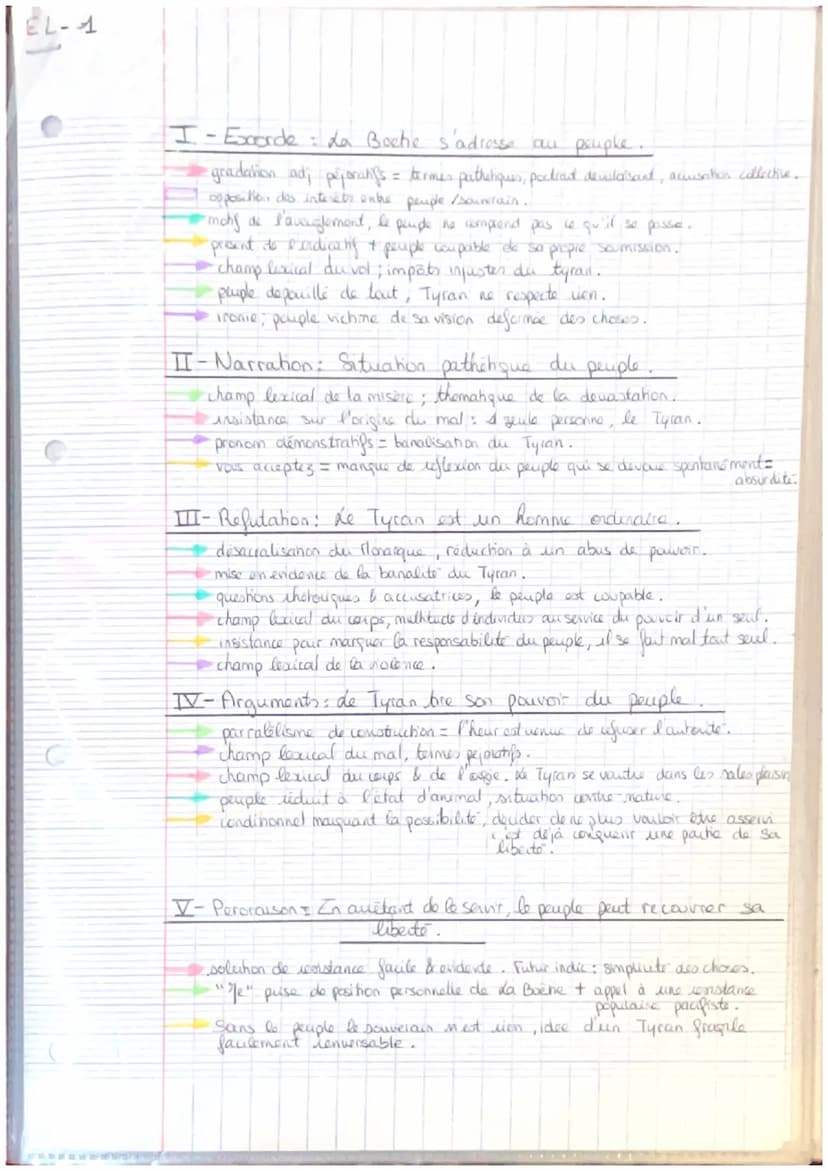 EL-1
I - Exorde : La Boétie s'adresse au peuple.
gradation adj péjoratifs = termes pathétiques, portrait dévalorisant, accusation collective.
opposition des intérêts entre peuple / souverain.
motif de l'aveuglement, le peuple ne comprend pas ce qu'il se passe.
présent de l'indicatif + peuple coupable de sa propre soumission.
champ lexical du vol ; impôts injustes du tyran.
peuple dépouillé de tout, Tyran ne respecte rien.
ironie ; peuple victime de sa vision déformée des choses.
II - Narration : Situation pathétique du peuple.
champ lexical de la misère ; thématique de la dévastation.
insistance sur l'origine du mal : 1 seule personne, le Tyran.
pronom démonstratifs = banalisation du Tyran.
vous acceptez = manque de réflexion du peuple qui se dévoue spontanément =
absurdité.
III - Réfutation : Le Tyran est un homme ordinaire.
désacralisation du Monarque, réduction à un abus de pouvoir.
mise en évidence de la banalité du Tyran.
questions rhétoriques & accusatrices, le peuple est coupable.
champ lexical du corps, multitude d'individus au service du pouvoir d'un seul.
insistance pour marquer la responsabilité du peuple, il se fait mal tout seul.
champ lexical de la violence.
IV - Arguments : Le Tyran tire son pouvoir du peuple.
parralélisme de construction = l'heure est venue de refuser l'autorité.
champ lexical du mal, termes péjoratifs.
champ lexical du corps & de l'orgie. Le Tyran se vautre dans les sales plaisirs
peuple réduit à l'état d'animal, situation contre-nature.
conditionnel marquant la possibilité, décider de ne plus vouloir être asservi
c'est déjà conquérir une partie de sa
liberté.
V - Peroraison = En arrêtant de le servir, le peuple peut recouvrer sa
liberté.
solution de résistance facile & évidente. Futur indic : simplicité des choses.
"Je" prise de position personnelle de La Boétie + appel à une résistance
populaire pacifiste.
Sans le peuple le souverain n'est rien, idée d'un Tyran fragile
facilement renversable.